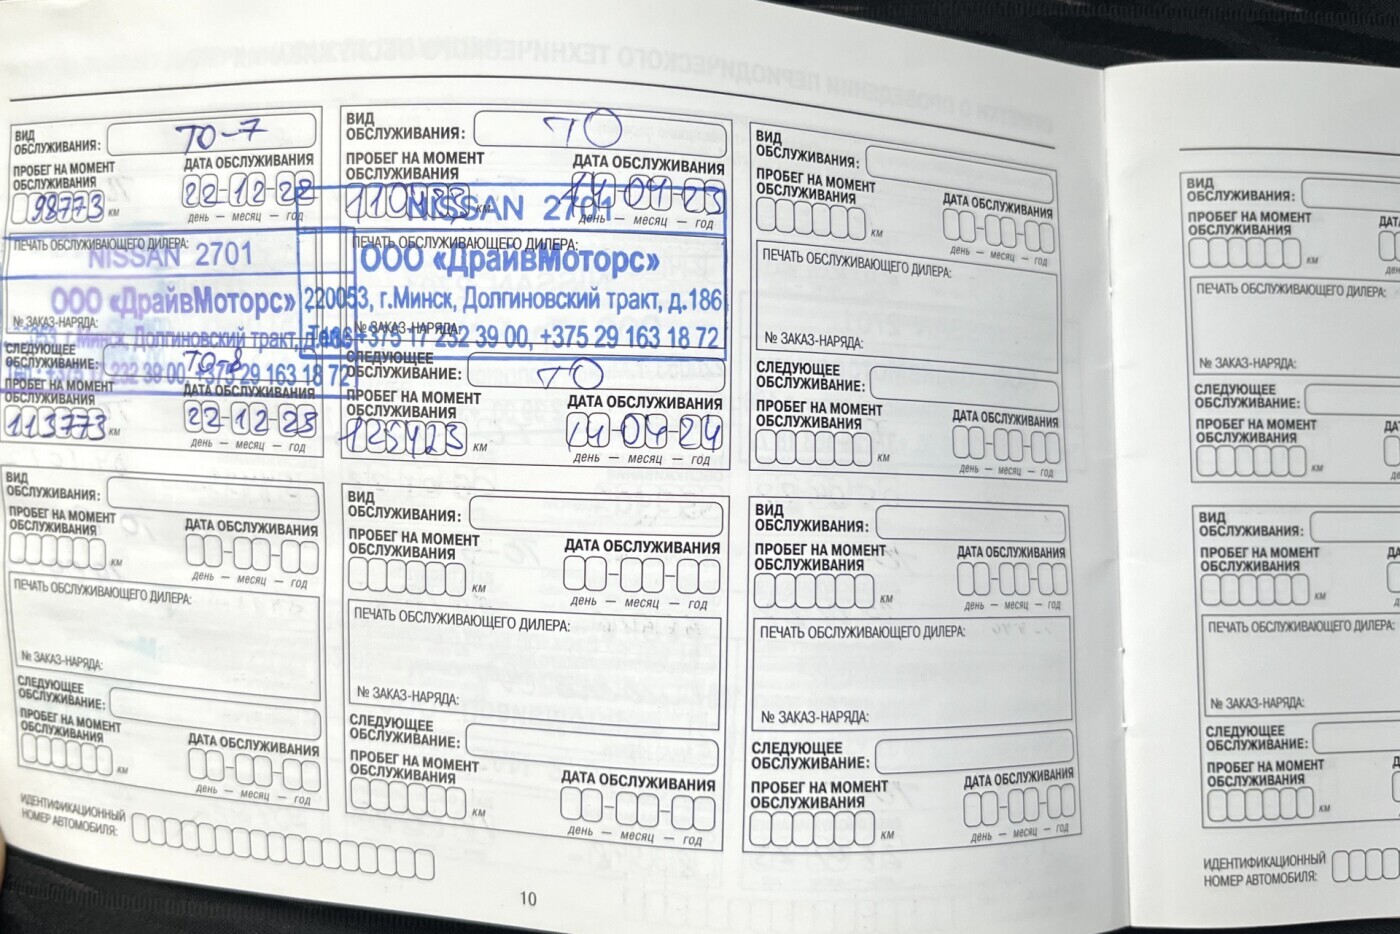 ВИД ОБСЛУЖИВАНИЯ: ТО-7
ПРОБЕГ НА МОМЕНТ ОБСЛУЖИВАНИЯ
98773 КМ
ДАТА ОБСЛУЖИВАНИЯ
22-12-22
день — месяц — год
ПЕЧАТЬ ОБСЛУЖИВАЮЩЕГО ДИЛЕРА:
NISSAN 2701
ООО «ДрайвМоторс»
№ ЗАКАЗ-НАРЯДА:
Минск, Долгиновский тракт,
232 39 00, +375 29 163 18 72
СЛЕДУЮЩЕЕ ОБСЛУЖИВАНИЕ: ТО-8
ПРОБЕГ НА МОМЕНТ ОБСЛУЖИВАНИЯ
113773 КМ
ДАТА ОБСЛУЖИВАНИЯ
22-12-23
день — месяц — год
ВИД ОБСЛУЖИВАНИЯ: ТО
ПРОБЕГ НА МОМЕНТ ОБСЛУЖИВАНИЯ
КМ
ДАТА ОБСЛУЖИВАНИЯ
14-04-23
день — месяц — год
NISSAN 2701
ПЕЧАТЬ ОБСЛУЖИВАЮЩЕГО ДИЛЕРА:
ООО «ДрайвМоторс»
220053, г.Минск, Долгиновский тракт, д.186
№ ЗАКАЗ-НАРЯДА:
+375 17 232 39 00, +375 29 163 18 72
СЛЕДУЮЩЕЕ ОБСЛУЖИВАНИЕ: ТО
ПРОБЕГ НА МОМЕНТ ОБСЛУЖИВАНИЯ
125423 КМ
ДАТА ОБСЛУЖИВАНИЯ
14-04-24
день — месяц — год
ВИД ОБСЛУЖИВАНИЯ:
ПРОБЕГ НА МОМЕНТ ОБСЛУЖИВАНИЯ
КМ
ДАТА ОБСЛУЖИВАНИЯ
день — месяц — год
ПЕЧАТЬ ОБСЛУЖИВАЮЩЕГО ДИЛЕРА:
№ ЗАКАЗ-НАРЯДА:
СЛЕДУЮЩЕЕ ОБСЛУЖИВАНИЕ:
ПРОБЕГ НА МОМЕНТ ОБСЛУЖИВАНИЯ
КМ
ДАТА ОБСЛУЖИВАНИЯ
день — месяц — год
ВИД ОБСЛУЖИВАНИЯ:
ПРОБЕГ НА МОМЕНТ ОБСЛУЖИВАНИЯ
КМ
ДАТА ОБСЛУЖИВАНИЯ
день — месяц — год
ПЕЧАТЬ ОБСЛУЖИВАЮЩЕГО ДИЛЕРА:
№ ЗАКАЗ-НАРЯДА:
СЛЕДУЮЩЕЕ ОБСЛУЖИВАНИЕ:
ПРОБЕГ НА МОМЕНТ ОБСЛУЖИВАНИЯ
КМ
ДАТА ОБСЛУЖИВАНИЯ
день — месяц — год
ВИД ОБСЛУЖИВАНИЯ:
ПРОБЕГ НА МОМЕНТ ОБСЛУЖИВАНИЯ
КМ
ДАТА ОБСЛУЖИВАНИЯ
день — месяц — год
ПЕЧАТЬ ОБСЛУЖИВАЮЩЕГО ДИЛЕРА:
№ ЗАКАЗ-НАРЯДА:
СЛЕДУЮЩЕЕ ОБСЛУЖИВАНИЕ:
ПРОБЕГ НА МОМЕНТ ОБСЛУЖИВАНИЯ
КМ
ДАТА ОБСЛУЖИВАНИЯ
день — месяц — год
ВИД ОБСЛУЖИВАНИЯ:
ПРОБЕГ НА МОМЕНТ ОБСЛУЖИВАНИЯ
КМ
ДАТА ОБСЛУЖИВАНИЯ
день — месяц — год
ПЕЧАТЬ ОБСЛУЖИВАЮЩЕГО ДИЛЕРА:
№ ЗАКАЗ-НАРЯДА:
СЛЕДУЮЩЕЕ ОБСЛУЖИВАНИЕ:
ПРОБЕГ НА МОМЕНТ ОБСЛУЖИВАНИЯ
КМ
ДАТА ОБСЛУЖИВАНИЯ
день — месяц — год
ИДЕНТИФИКАЦИОННЫЙ НОМЕР АВТОМОБИЛЯ:
10
ВИД ОБСЛУЖИВАНИЯ:
ПРОБЕГ НА МОМЕНТ ОБСЛУЖИВАНИЯ
КМ
ПЕЧАТЬ ОБСЛУЖИВАЮЩЕГО ДИЛЕРА:
№ ЗАКАЗ-НАРЯДА:
СЛЕДУЮЩЕЕ ОБСЛУЖИВАНИЕ:
ПРОБЕГ НА МОМЕНТ ОБСЛУЖИВАНИЯ
КМ
ВИД ОБСЛУЖИВАНИЯ:
ПРОБЕГ НА МОМЕНТ ОБСЛУЖИВАНИЯ
КМ
ПЕЧАТЬ ОБСЛУЖИВАЮЩЕГО ДИЛЕРА:
№ ЗАКАЗ-НАРЯДА:
СЛЕДУЮЩЕЕ ОБСЛУЖИВАНИЕ:
ПРОБЕГ НА МОМЕНТ ОБСЛУЖИВАНИЯ
КМ
ИДЕНТИФИКАЦИОННЫЙ НОМЕР АВТОМОБИЛЯ: